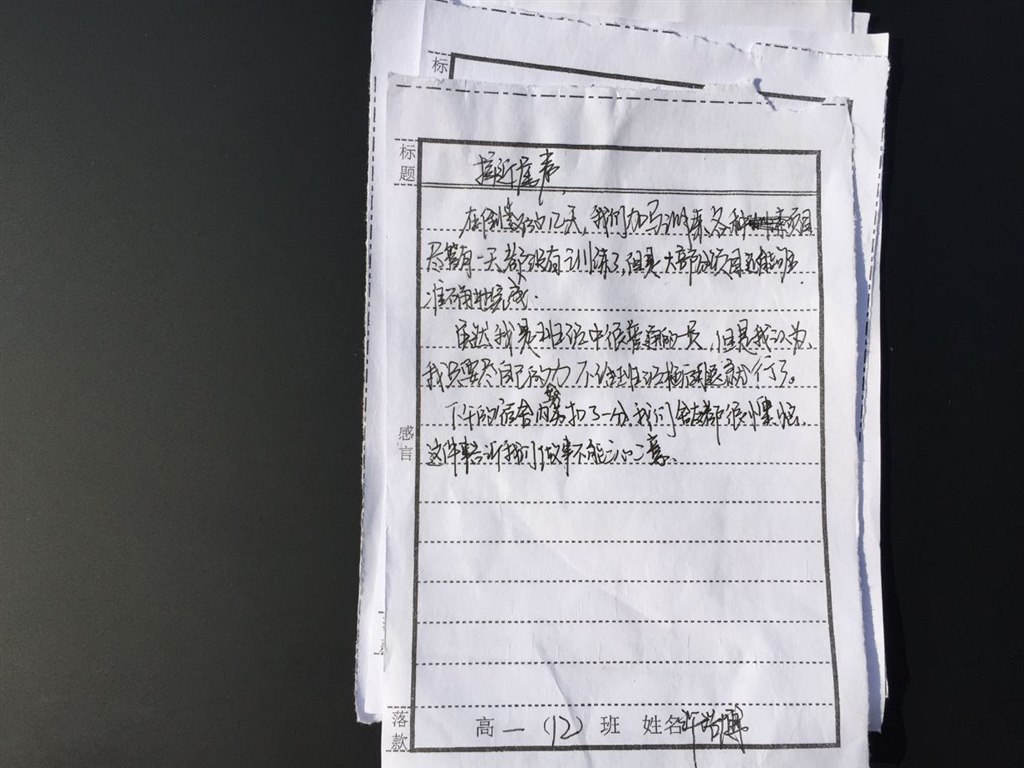 标
标题
接近尾声
在倒数的几天,我们加马训练各种项目
尽管有一天都没有训练了,但是大部分项目还能够
准确地完成.
虽然我是班级中很普通的一员,但是我认为,
我只要尽自己的力,不给班级拖后腿就行了。
下午的宿舍内务扣了一分,我们舍友都很懊恼,
这件事告诉我们做事不能三心二意.
感言
落款
高一(12)班 姓名